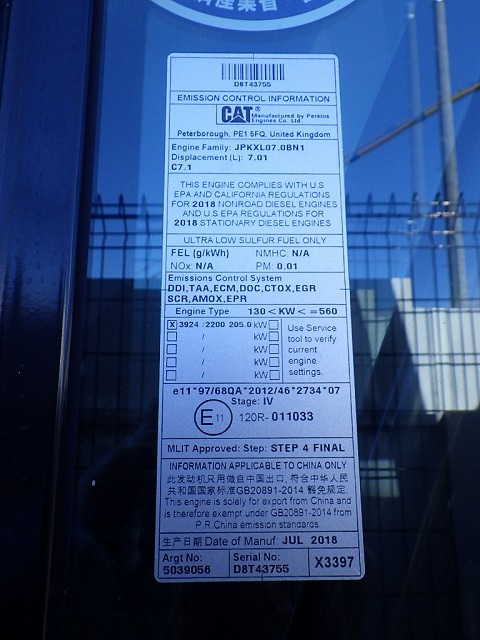 D8T43755
EMISSION CONTROL INFORMATION
CAT® Manufactured by Perkins
Engines Co. Ltd.
Peterborough, PE1 5FQ, United Kingdom
Engine Family: JPKXL07.0BN1
Displacement (L): 7.01
C7.1
THIS ENGINE COMPLIES WITH U.S
EPA AND CALIFORNIA REGULATIONS
FOR 2018 NONROAD DIESEL ENGINES
AND U.S EPA REGULATIONS FOR
2018 STATIONARY DIESEL ENGINES
ULTRA LOW SULFUR FUEL ONLY
FEL (g/kWh) NMHC: N/A
NOx: N/A PM: 0.01
Emissions Control System
DDI,TAA,ECM,DOC,CTOX,EGR
SCR,AMOX,EPR
Engine Type 130<KW<=560
X 3924 /2200 205.0 kW
/ kW
/ kW
/ kW
/ kW
Use Service
tool to verify
current
engine
settings.
e11*97/68QA*2012/46*2734*07
Stage: IV
E 11 120R-011033
MLIT Approved: Step: STEP 4 FINAL
INFORMATION APPLICABLE TO CHINA ONLY
此发动机只用做自中国出口，符合中华人民
共和国国家标准GB20891-2014 豁免规定.
This engine is solely for export from China and
is therefore exempt under GB20891-2014 from
P.R.China emission standards.
生产日期 Date of Manuf: JUL 2018
Argt No:
5039056
Serial No:
D8T43755
X3397